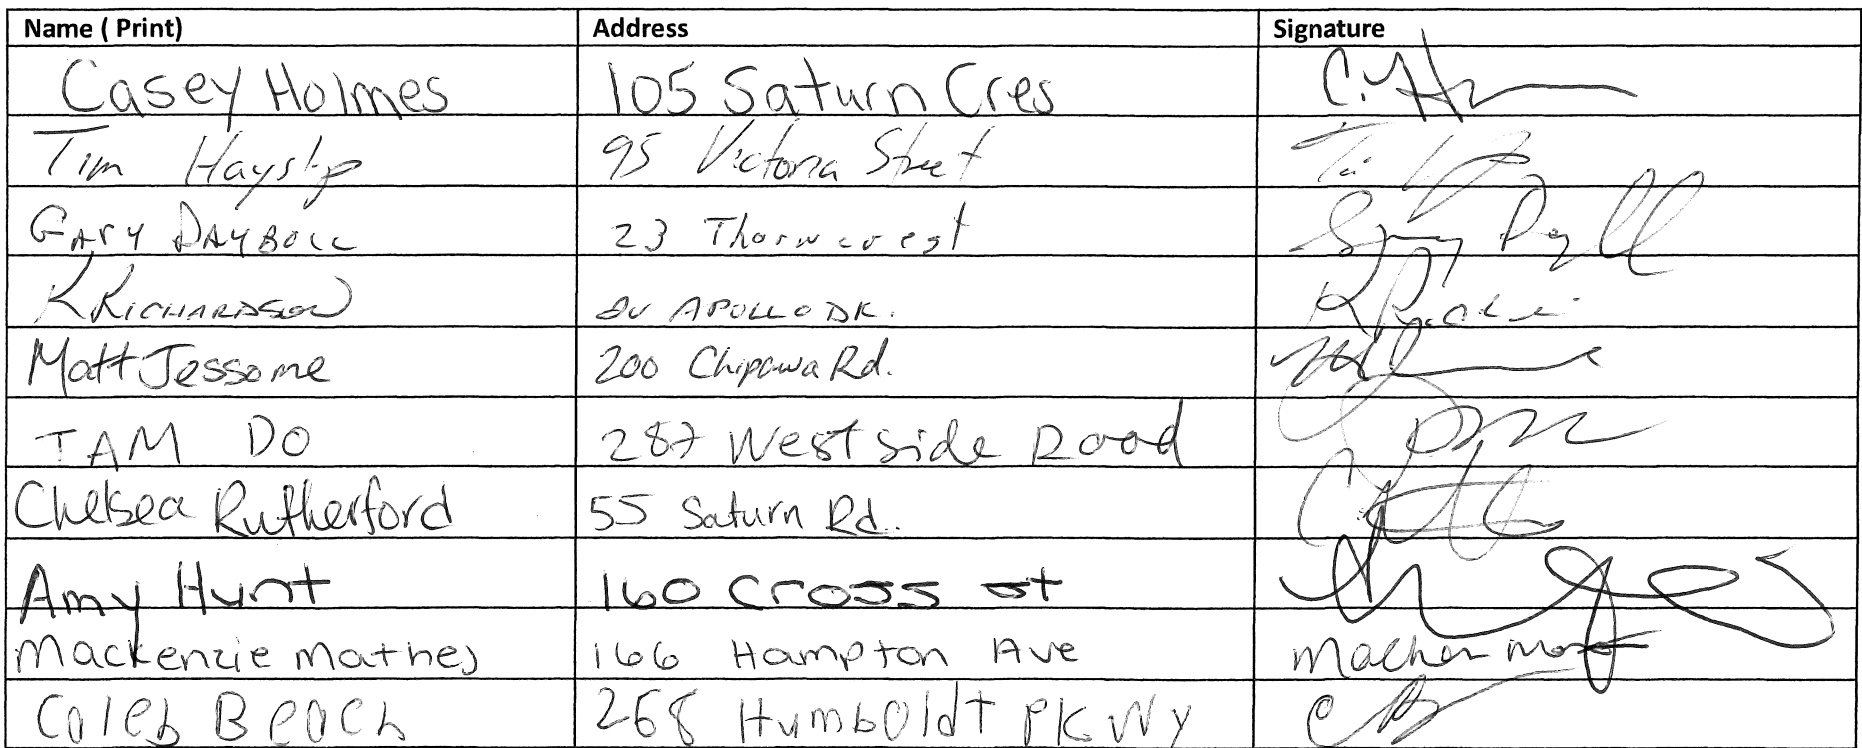 Name ( Print) Address Signature
Casey Holmes 105 Saturn Cres C. H
Tim Hayslip 95 Victoria Street Tim
GARY DAYBOLL 23 Thorncrest Gary Dayboll
K RICHARDSON APOLLO DR.
Matt Jessome 200 Chipawa Rd.
TAM DO 287 West side Road
Chelsea Rutherford 55 Saturn Rd.
Amy Hunt 160 Cross st
Mackenzie Mathes 166 Hampton Ave
Caleb Beach 268 Humboldt PKWY